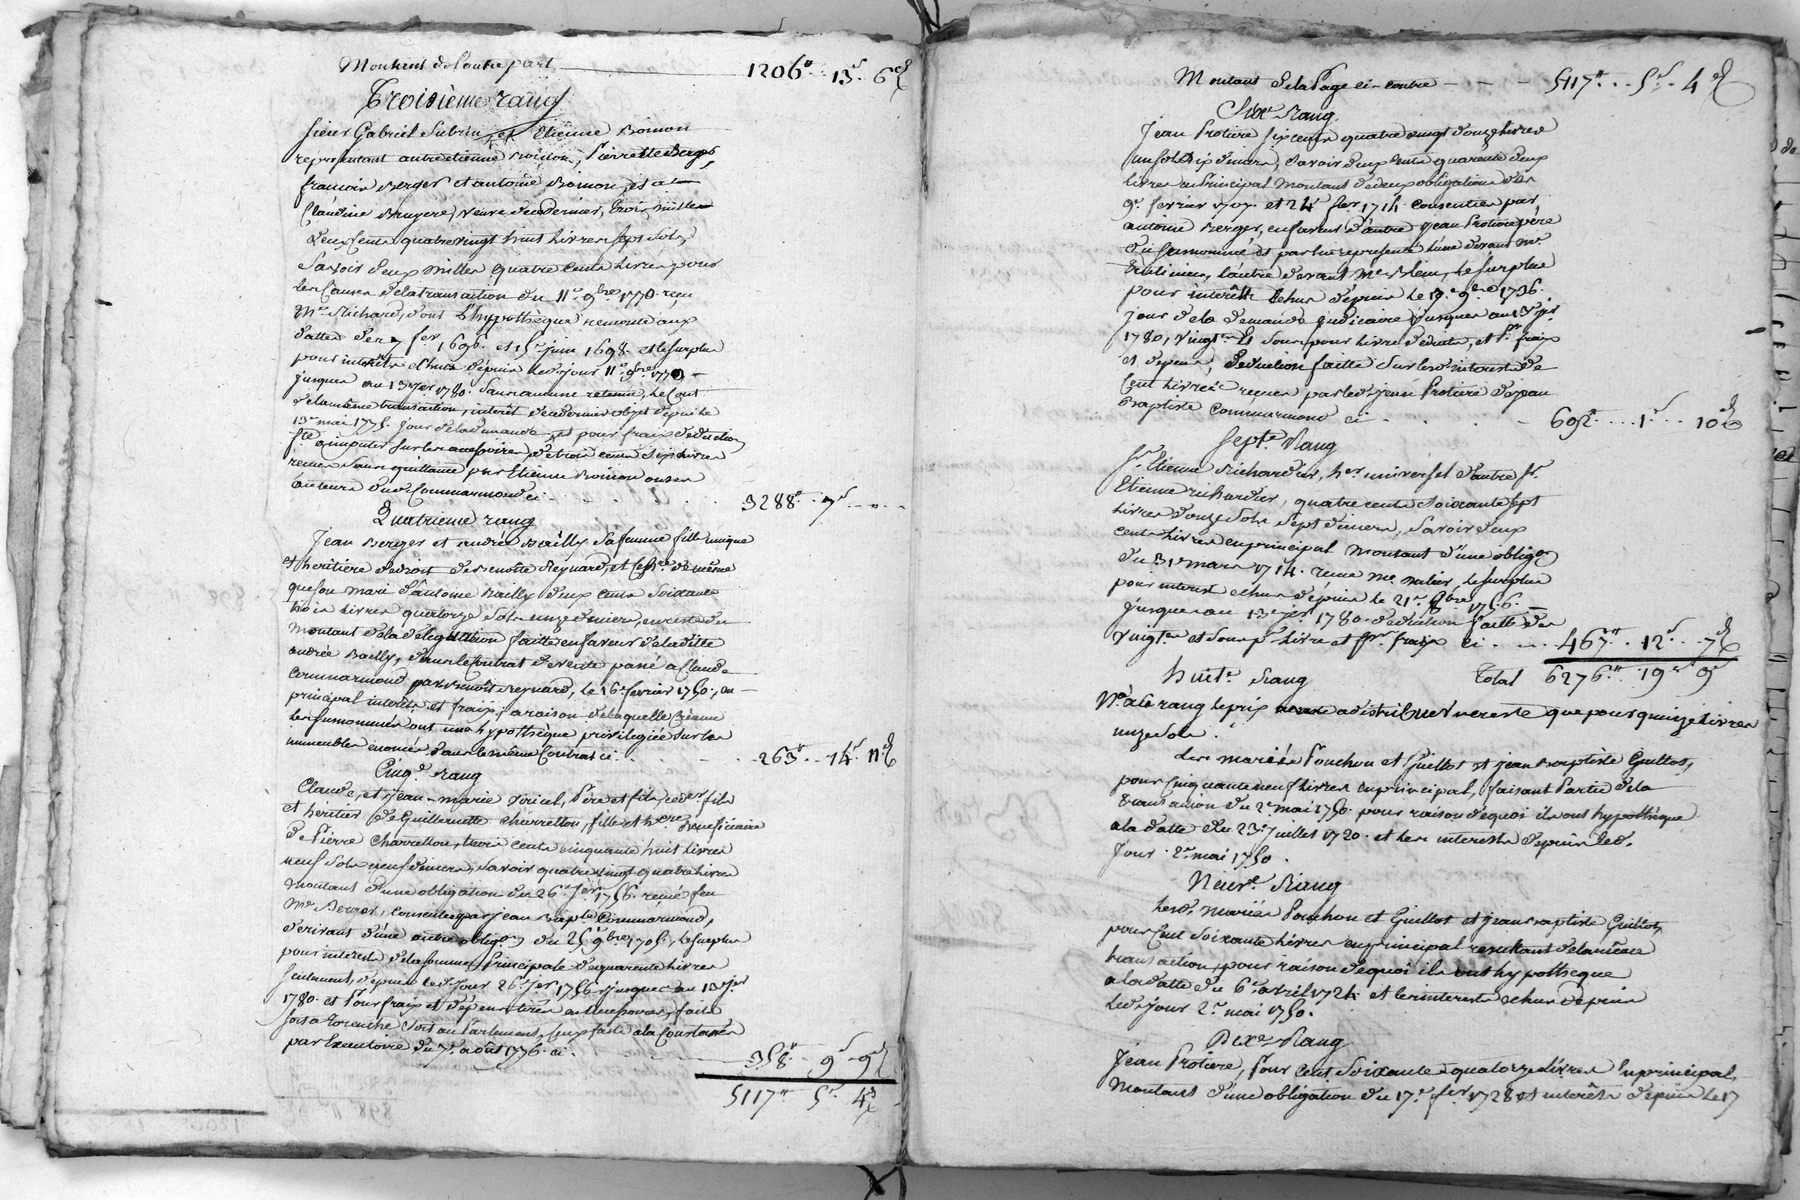 Montant de l'autre part 1206ᵗᵗ 13ˢ 6ᵈ
Troisième rang
Sieur Gabriel Subrin et Etienne Boiron
representant autre etienne Boiron, Pierrette Berger,
françois Berger et antoine Boiron, et a
Claudine Bruyere, veuve de ce dernier, trois mille
deux cents quatre vingt huit livres sept sols,
Savoir deux milles quatre cents livres pour
les Causes de la transaction du 11ᵉ 9bre 1770 reçu
Mᵉ Richard, dont l'hypothèque remonte aux
dattes des 7 fer 1696 et 15 juin 1698 et le surplus
pour interets echus depuis led. jour 11ᵉ 9bre 1770
jusques au 13 1780 sans aucune retenue, le Cout
de la même transaction, interêt de ce dernier objet depuis le
13ᵉ mai 1775 jour de la demande et pour frais deduction
fte a imputer sur les accessoires de trois cents six livres
reçues sans quittance par Etienne Boiron ou ses
auteurs dud. Commarmond ci 3288ᵗᵗ 7ˢ
Quatrieme rang
Jean Berger et andrée Bailly sa femme fille unique
et heritiere de droit de Benoite Reynard, et de même
que son mari d'antoine Bailly deux cents soixante
trois livres quatorze sols onze deniers, en reste du
Montant de la délégation faitte en faveur de laditte
andrée Bailly, dans le Contrat de vente passé a Claude
Commarmond par Benoit Reynard, le 16ᵉ fevrier 1750, en
principal interets et fraix; a raison de laquelle Créance
les susnommés ont une hypothèque privilegiée sur les
immeubles enoncés dans le même Contrat ci 263ᵗᵗ 14ˢ 11ᵈ
Cinq.ᵉ Rang
Claude, et Jean-marie Père et fils,
et heritier de Guillemette Charretton, fille et h.ere beneficiaire
de Pierre Charretton, trois cents cinquante huit livres
neuf sols neuf deniers, savoir quatre vingt quatre livres
montant d'une obligation du 26ᵉ 1756 reçue feu
Mᵉ Berger, consentie par jean Bap.te Commarmond,
derivant d'une autre oblig.on du 25ᵉ 9bre 1705, le surplus
pour interets de la somme Principale de quarente livres
seulement, depuis led. jour 26 1756 jusques au 13
1780 et Pour frais et dépens liréz au faits
soit a soit au Parlement, faits a la
par Executoire du 7ᵉ août 1776 ci 358ᵗᵗ 9ˢ 9ᵈ
5117ᵗᵗ 5ˢ 4ᵈ
Montant de la Page ci-contre 5117ᵗᵗ 5ˢ 4ᵈ
Sixᵉ Rang
Jean Protiere six cents quatre vingt douze livres
un sol dix deniers, savoir deux cents quarente deux
livres en Principal montant de deux obligations des
9ᵉ fevrier 1707 et 24 fer 1714 consenties par
antoine Berger, en faveur d'autre Jean Protiere père
du susnommé et par lui representé l'une devant Mᵉ
l'autre devant Mᵉ Blein, le surplus
pour interêts echus depuis le 19ᵉ 9bre 1736
jour de la demande judiciaire jusques au 13
1780, vingt.e et sous pour livre deduits, et pr. frais
et depens, deduction faitte sur lesd. interets de
cent livres reçues par led. jean Protiere de jean
Baptiste Commarmond ci 692ᵗᵗ 1ˢ 10ᵈ
Septᵉ Rang
Sr. Etienne Richardier, h.er universel d'autre Sr.
Etienne richardier, quatre cents soixante sept
livres douze sols sept deniers, savoir deux
cents livres en principal montant d'une oblig.on
du 31 mars 1714 reçue Mᵉ le surplus
pour interets echus depuis le 21ᵉ 1756
jusques au 13ᵉ 1780 deduction faitte des
vingt.es et sous pr. livre et pr. fraix ci 467ᵗᵗ 12ˢ 7ᵈ
Total 6276ᵗᵗ 19ˢ 9ᵈ
huit.ᵉ Rang
Nᵃ à ce rang le prix a distribuer ne reste que pour quinze livres
onze sols.
Les mariés Ponchon et Guillot et jean baptiste Guillot,
pour cinquante neuf livres en principal, faisant Partie de la
transaction du 2ᵉ mai 1750 pour raison de quoi ils ont hypothèque
a la datte du 23ᵉ juillet 1720 et les interets depuis led.
jour 2ᵉ mai 1750.
Neuv.ᵉ Rang
Lesd. mariés Ponchon et Guillot et jean baptiste Guillot,
pour cent soixante livres en principal resultant de la même
transaction, pour raison de quoi ils ont hypothèque
a la datte du 6ᵉ avril 1724 et les interets echus depuis
led. jour 2ᵉ mai 1750.
Dixᵉ Rang
Jean Protiere, Pour cent soixante quatorze livres en principal,
Montant d'une obligation du 17ᵉ fer 1728 et interêts depuis le 17